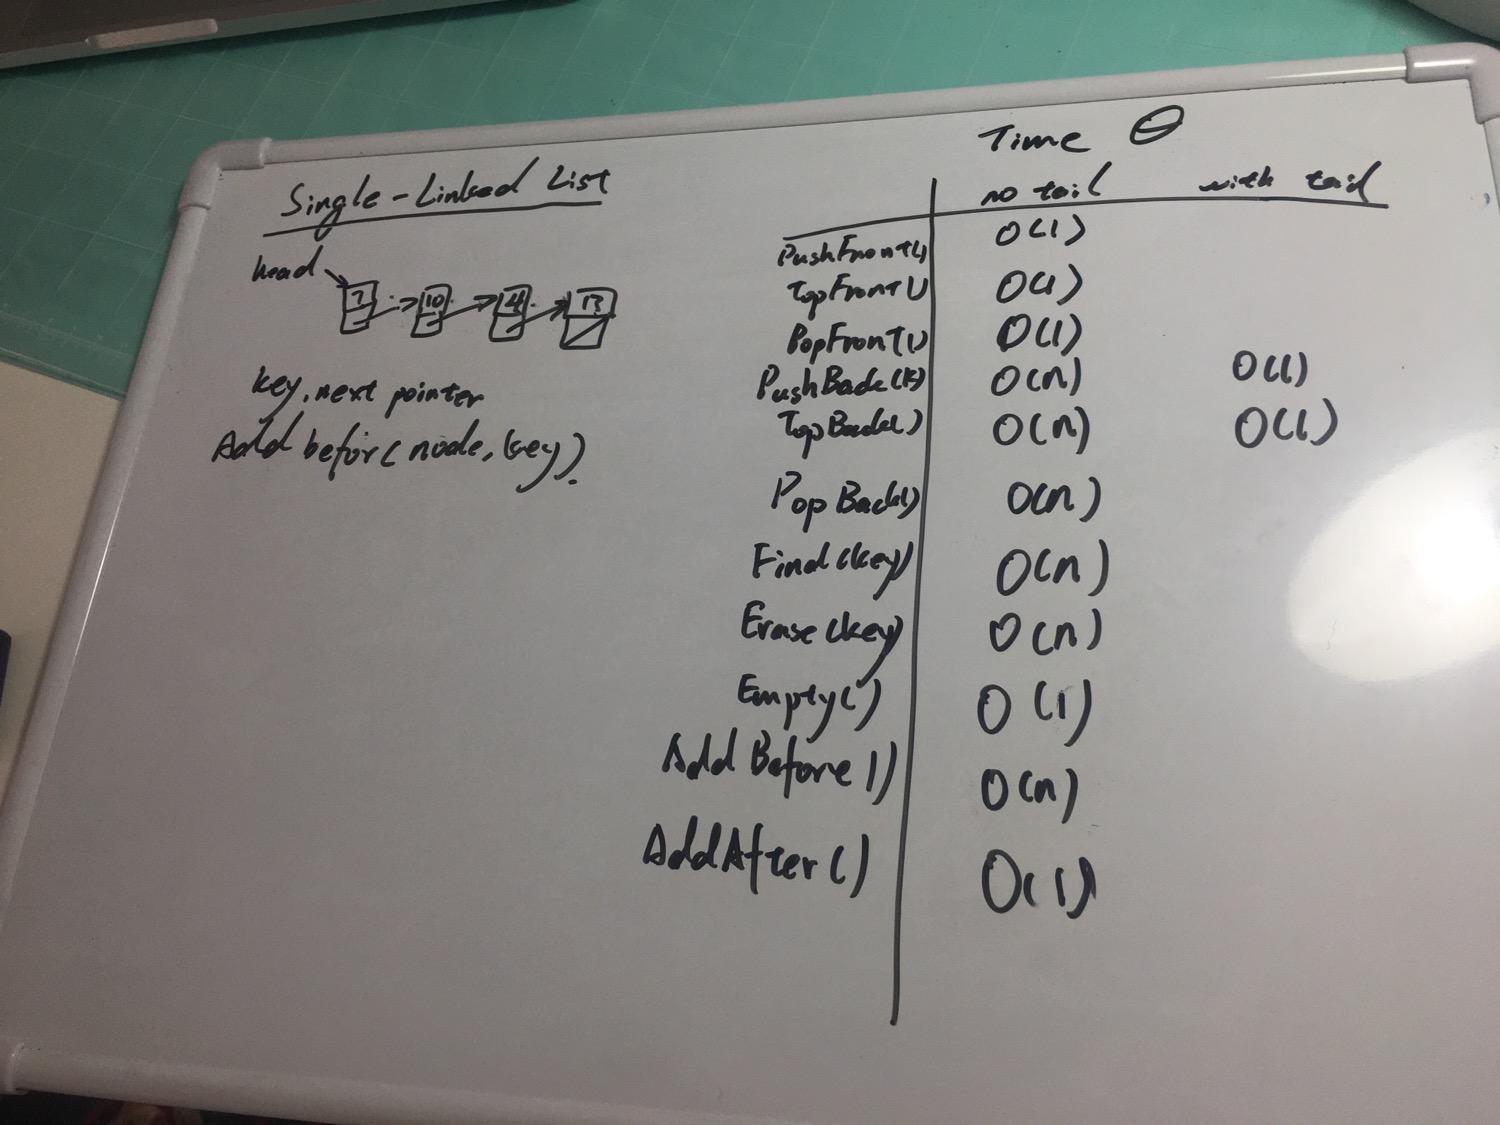 Single-Linked List
head
7 10 4 13
key, next pointer
Add befor( node, key).
Time Θ
no tail with tail
PushFront() O(1)
TopFront() O(1)
PopFront() O(1)
PushBack(K) O(n) O(1)
TopBack() O(n) O(1)
PopBack() O(n)
Find(key) O(n)
Erase(key) O(n)
Empty() O(1)
AddBefore() O(n)
AddAfter() O(1)